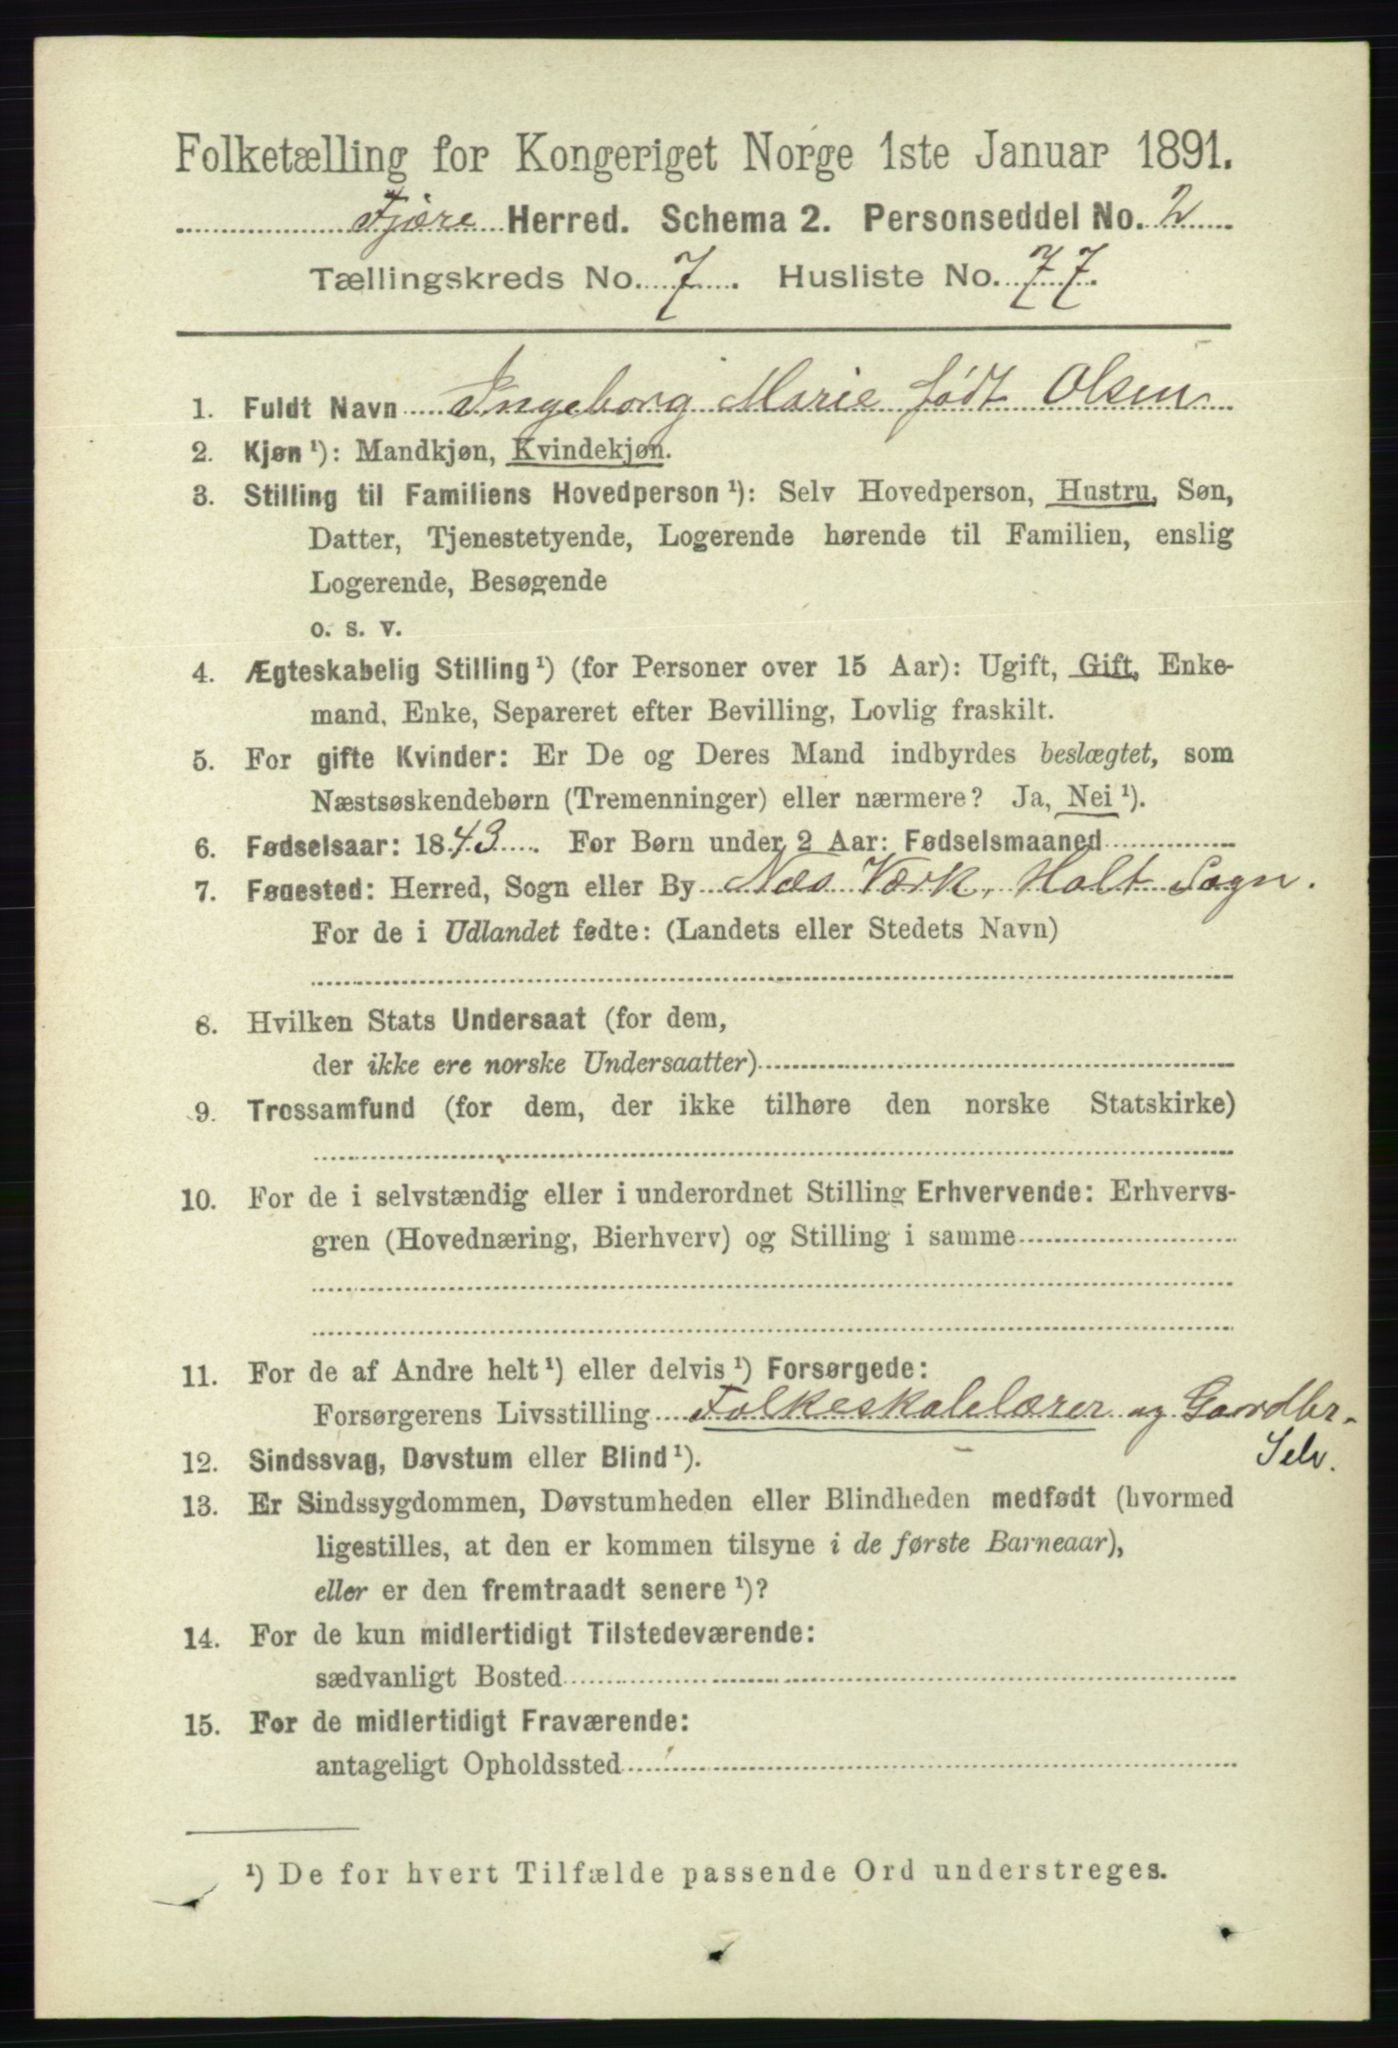 Folketælling for Kongeriget Norge 1ste Januar 1891.
Fjære Herred. Schema 2. Personseddel No. 2
Tællingskreds No. 7. Husliste No. 77.
1. Fuldt Navn Ingeborg Marie født Olsen
2. Kjøn ¹): Mandkjøn, Kvindekjøn.
3. Stilling til Familiens Hovedperson ¹): Selv Hovedperson, Hustru, Søn,
Datter, Tjenestetyende, Logerende hørende til Familien, enslig
Logerende, Besøgende
o. s. v.
4. Ægteskabelig Stilling ¹) (for Personer over 15 Aar): Ugift, Gift, Enke-
mand, Enke, Separeret efter Bevilling, Lovlig fraskilt.
5. For gifte Kvinder: Er De og Deres Mand indbyrdes beslægtet, som
Næstsøskendebørn (Tremenninger) eller nærmere? Ja, Nei ¹).
6. Fødselsaar: 1843. For Børn under 2 Aar: Fødselsmaaned
7. Fødested: Herred, Sogn eller By Næs Værk, Holt Sogn.
For de i Udlandet fødte: (Landets eller Stedets Navn)
8. Hvilken Stats Undersaat (for dem,
der ikke ere norske Undersaatter)
9. Trossamfund (for dem, der ikke tilhøre den norske Statskirke)
10. For de i selvstændig eller i underordnet Stilling Erhvervende: Erhvervs-
gren (Hovednæring, Bierhverv) og Stilling i samme
11. For de af Andre helt ¹) eller delvis ¹) Forsørgede:
Forsørgerens Livsstilling Folkeskolelærer og Gaardbr-
Selv.
12. Sindssvag, Døvstum eller Blind ¹).
13. Er Sindssygdommen, Døvstumheden eller Blindheden medfødt (hvormed
ligestilles, at den er kommen tilsyne i de første Barneaar),
eller er den fremtraadt senere ¹)?
14. For de kun midlertidigt Tilstedeværende:
sædvanligt Bosted
15. For de midlertidigt Fraværende:
antageligt Opholdssted
¹) De for hvert Tilfælde passende Ord understreges.